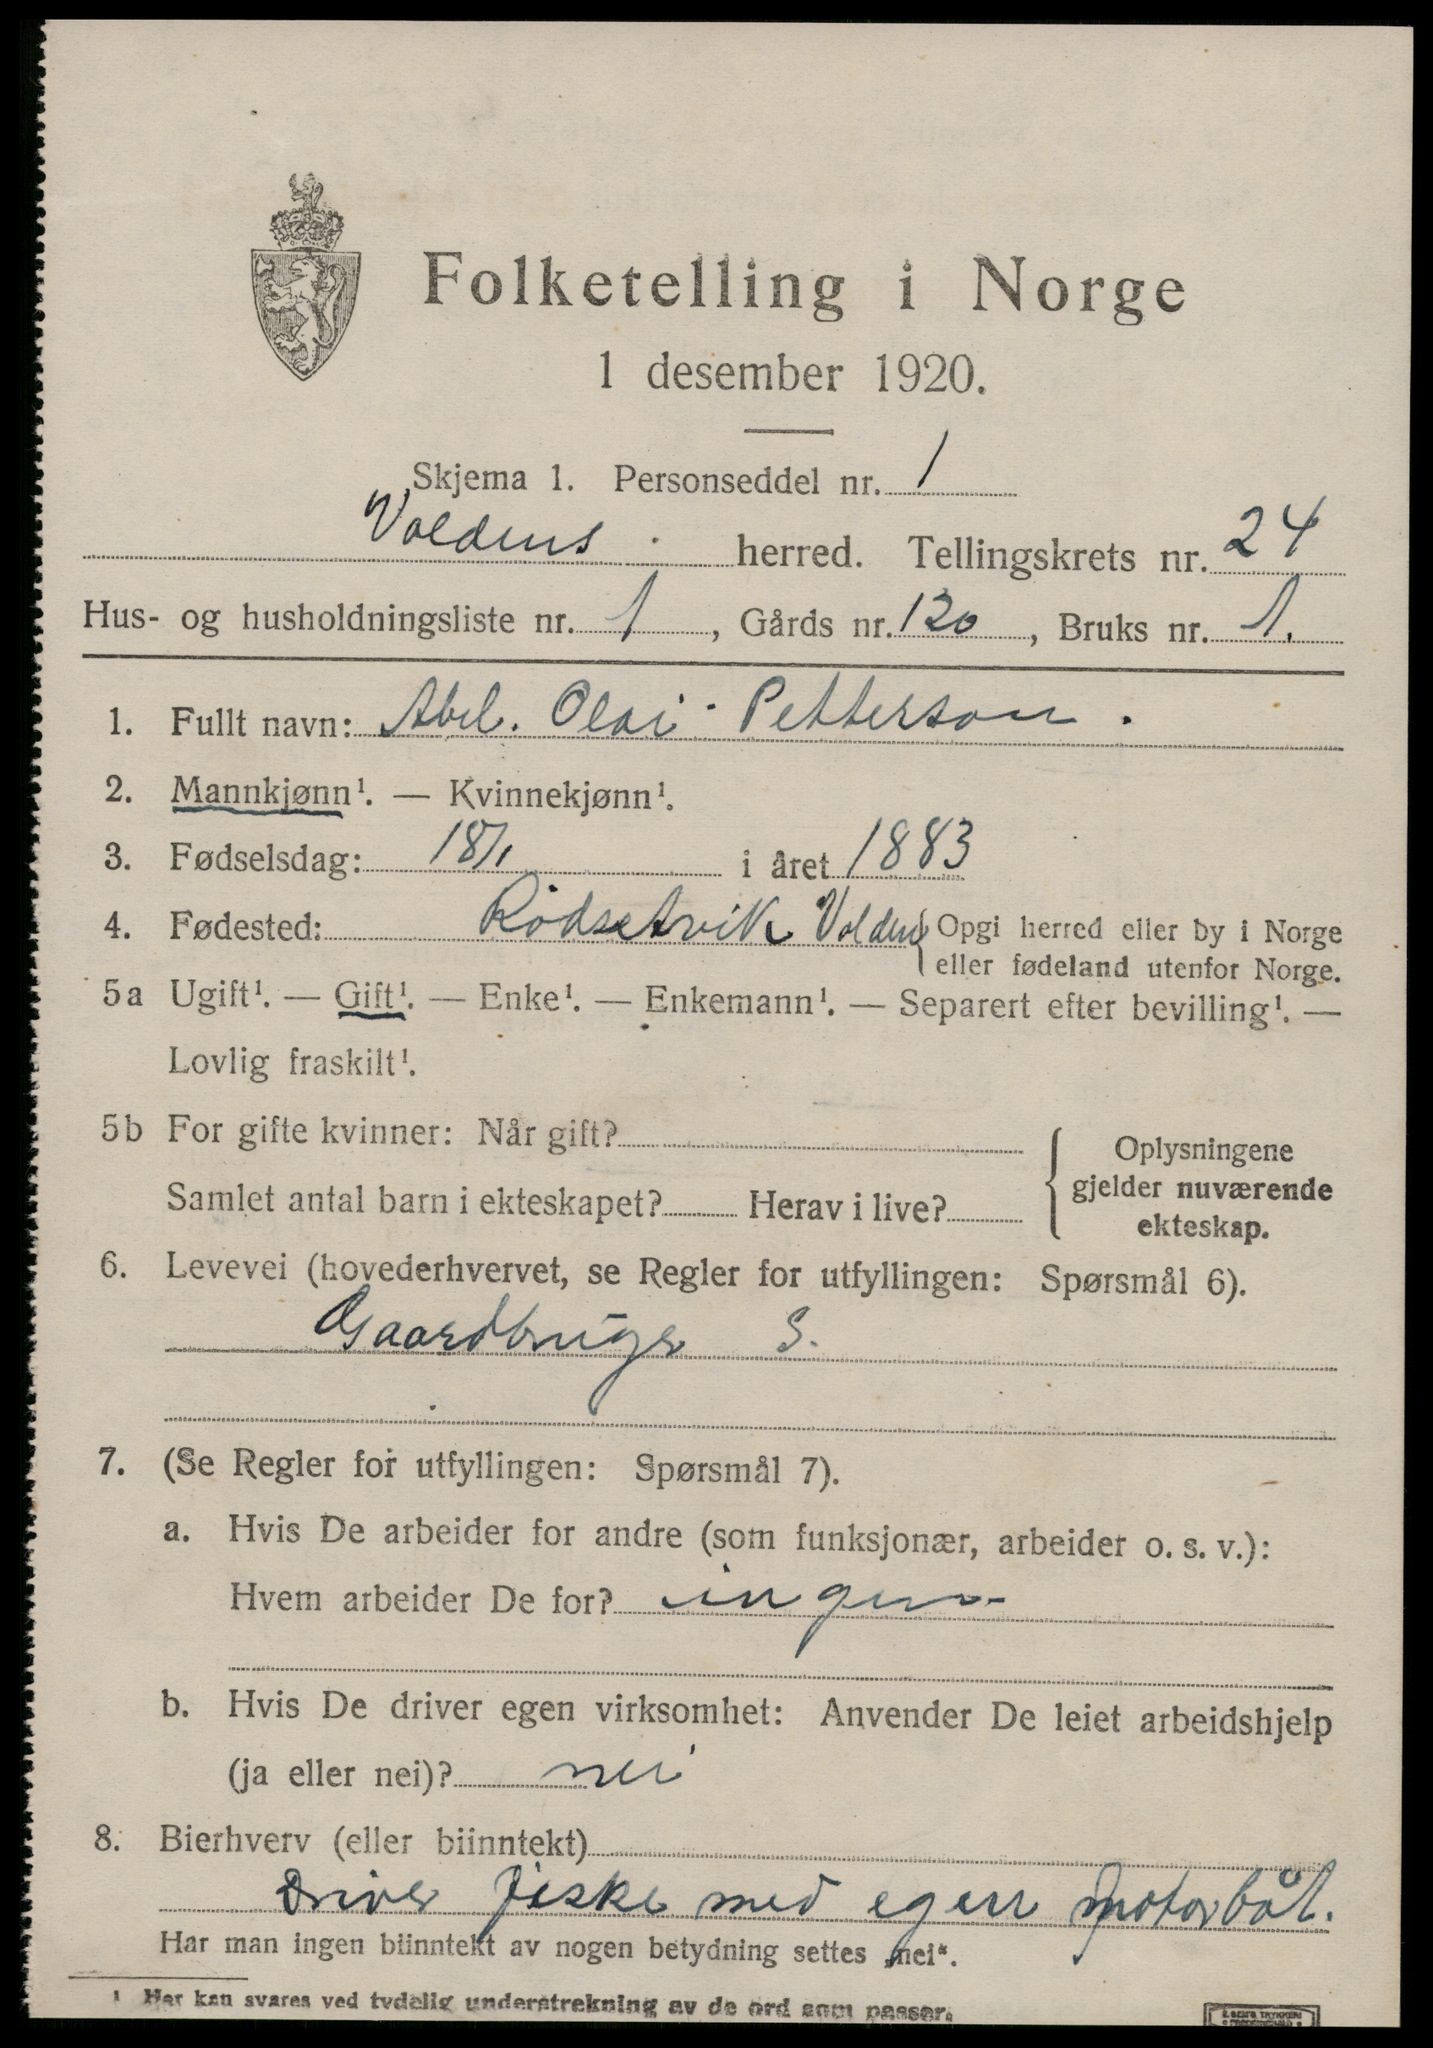 Folketelling i Norge
1 desember 1920.
Skjema 1. Personseddel nr. 1
Voldens herred. Tellingskrets nr. 24
Hus- og husholdningsliste nr. 1, Gårds nr. 120, Bruks nr. 1.
1. Fullt navn: Abel. Olai Petterson.
2. Mannkjønn¹. — Kvinnekjønn¹.
3. Fødselsdag: 18/1 i året 1883
4. Fødested: Rödsetvik Volden { Opgi herred eller by i Norge
eller fødeland utenfor Norge.
5a Ugift¹. — Gift¹. — Enke¹. — Enkemann¹. — Separert efter bevilling¹. —
Lovlig fraskilt¹.
5b For gifte kvinner: Når gift?
Samlet antal barn i ekteskapet? Herav i live?
{ Oplysningene
gjelder nuværende
ekteskap.
6. Levevei (hovederhvervet, se Regler for utfyllingen: Spørsmål 6).
Gaardbruger S.
7. (Se Regler for utfyllingen: Spørsmål 7).
a. Hvis De arbeider for andre (som funksjonær, arbeider o. s. v.):
Hvem arbeider De for? ingen
b. Hvis De driver egen virksomhet: Anvender De leiet arbeidshjelp
(ja eller nei)? nei
8. Bierhverv (eller biinntekt)
Driver fiske med egen motorbåt.
Har man ingen biinntekt av nogen betydning settes „nei“.
1 Her kan svares ved tydelig understrekning av de ord som passer.